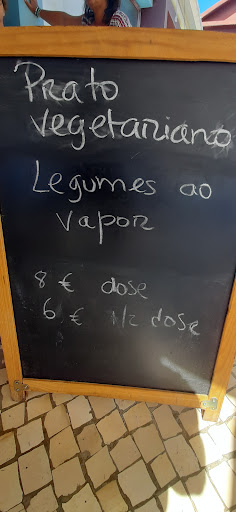 Prato
vegetariano
Legumes ao
vapor
8 € dose
6 € 1/2 dose